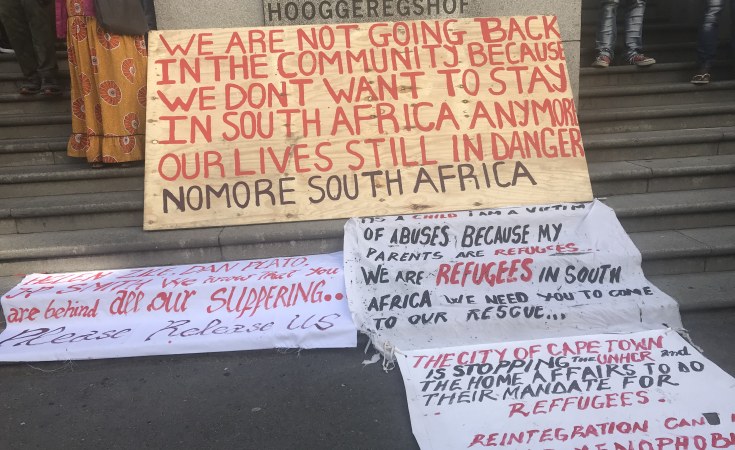 HOOGGEREGSHOF
WE ARE NOT GOING BACK
IN THE COMMUNITY BECAUSE
WE DONT WANT TO STAY
IN SOUTH AFRICA ANYMORE
OUR LIVES STILL IN DANGER
NOMORE SOUTH AFRICA
AS A CHILD I AM A VICTIM
OF ABUSES BECAUSE MY
PARENTS ARE REFUGEES...
WE ARE REFUGEES IN SOUTH
AFRICA WE NEED YOU TO COME
TO OUR RESCUE...
ZILLE. DAN PLATO.
SMITH We know that you
are behind all our SUPPERING...
Please Release US
THE CITY OF CAPE TOWN
IS STOPPING THE UNHCR and
THE HOME AFFAIRS TO DO
THEIR MANDATE FOR
REFFUGEES.
REINTEGRATION CAN